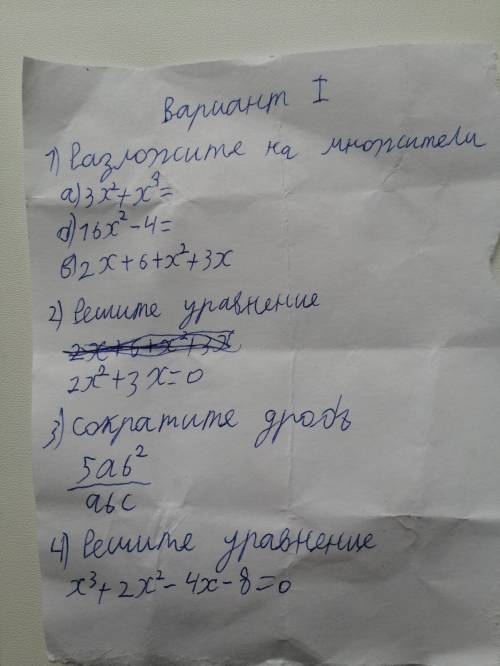 Вариант I
1) Разложите на множители
а) 3x² + x³ =
б) 16x² - 4 =
в) 2x + 6 + x² + 3x
2) Решите уравнение
2x + 6 + x² + 3x
2x² + 3x = 0
3) Сократите дробь
5ab²
abc
4) Решите уравнение
x³ + 2x² - 4x - 8 = 0